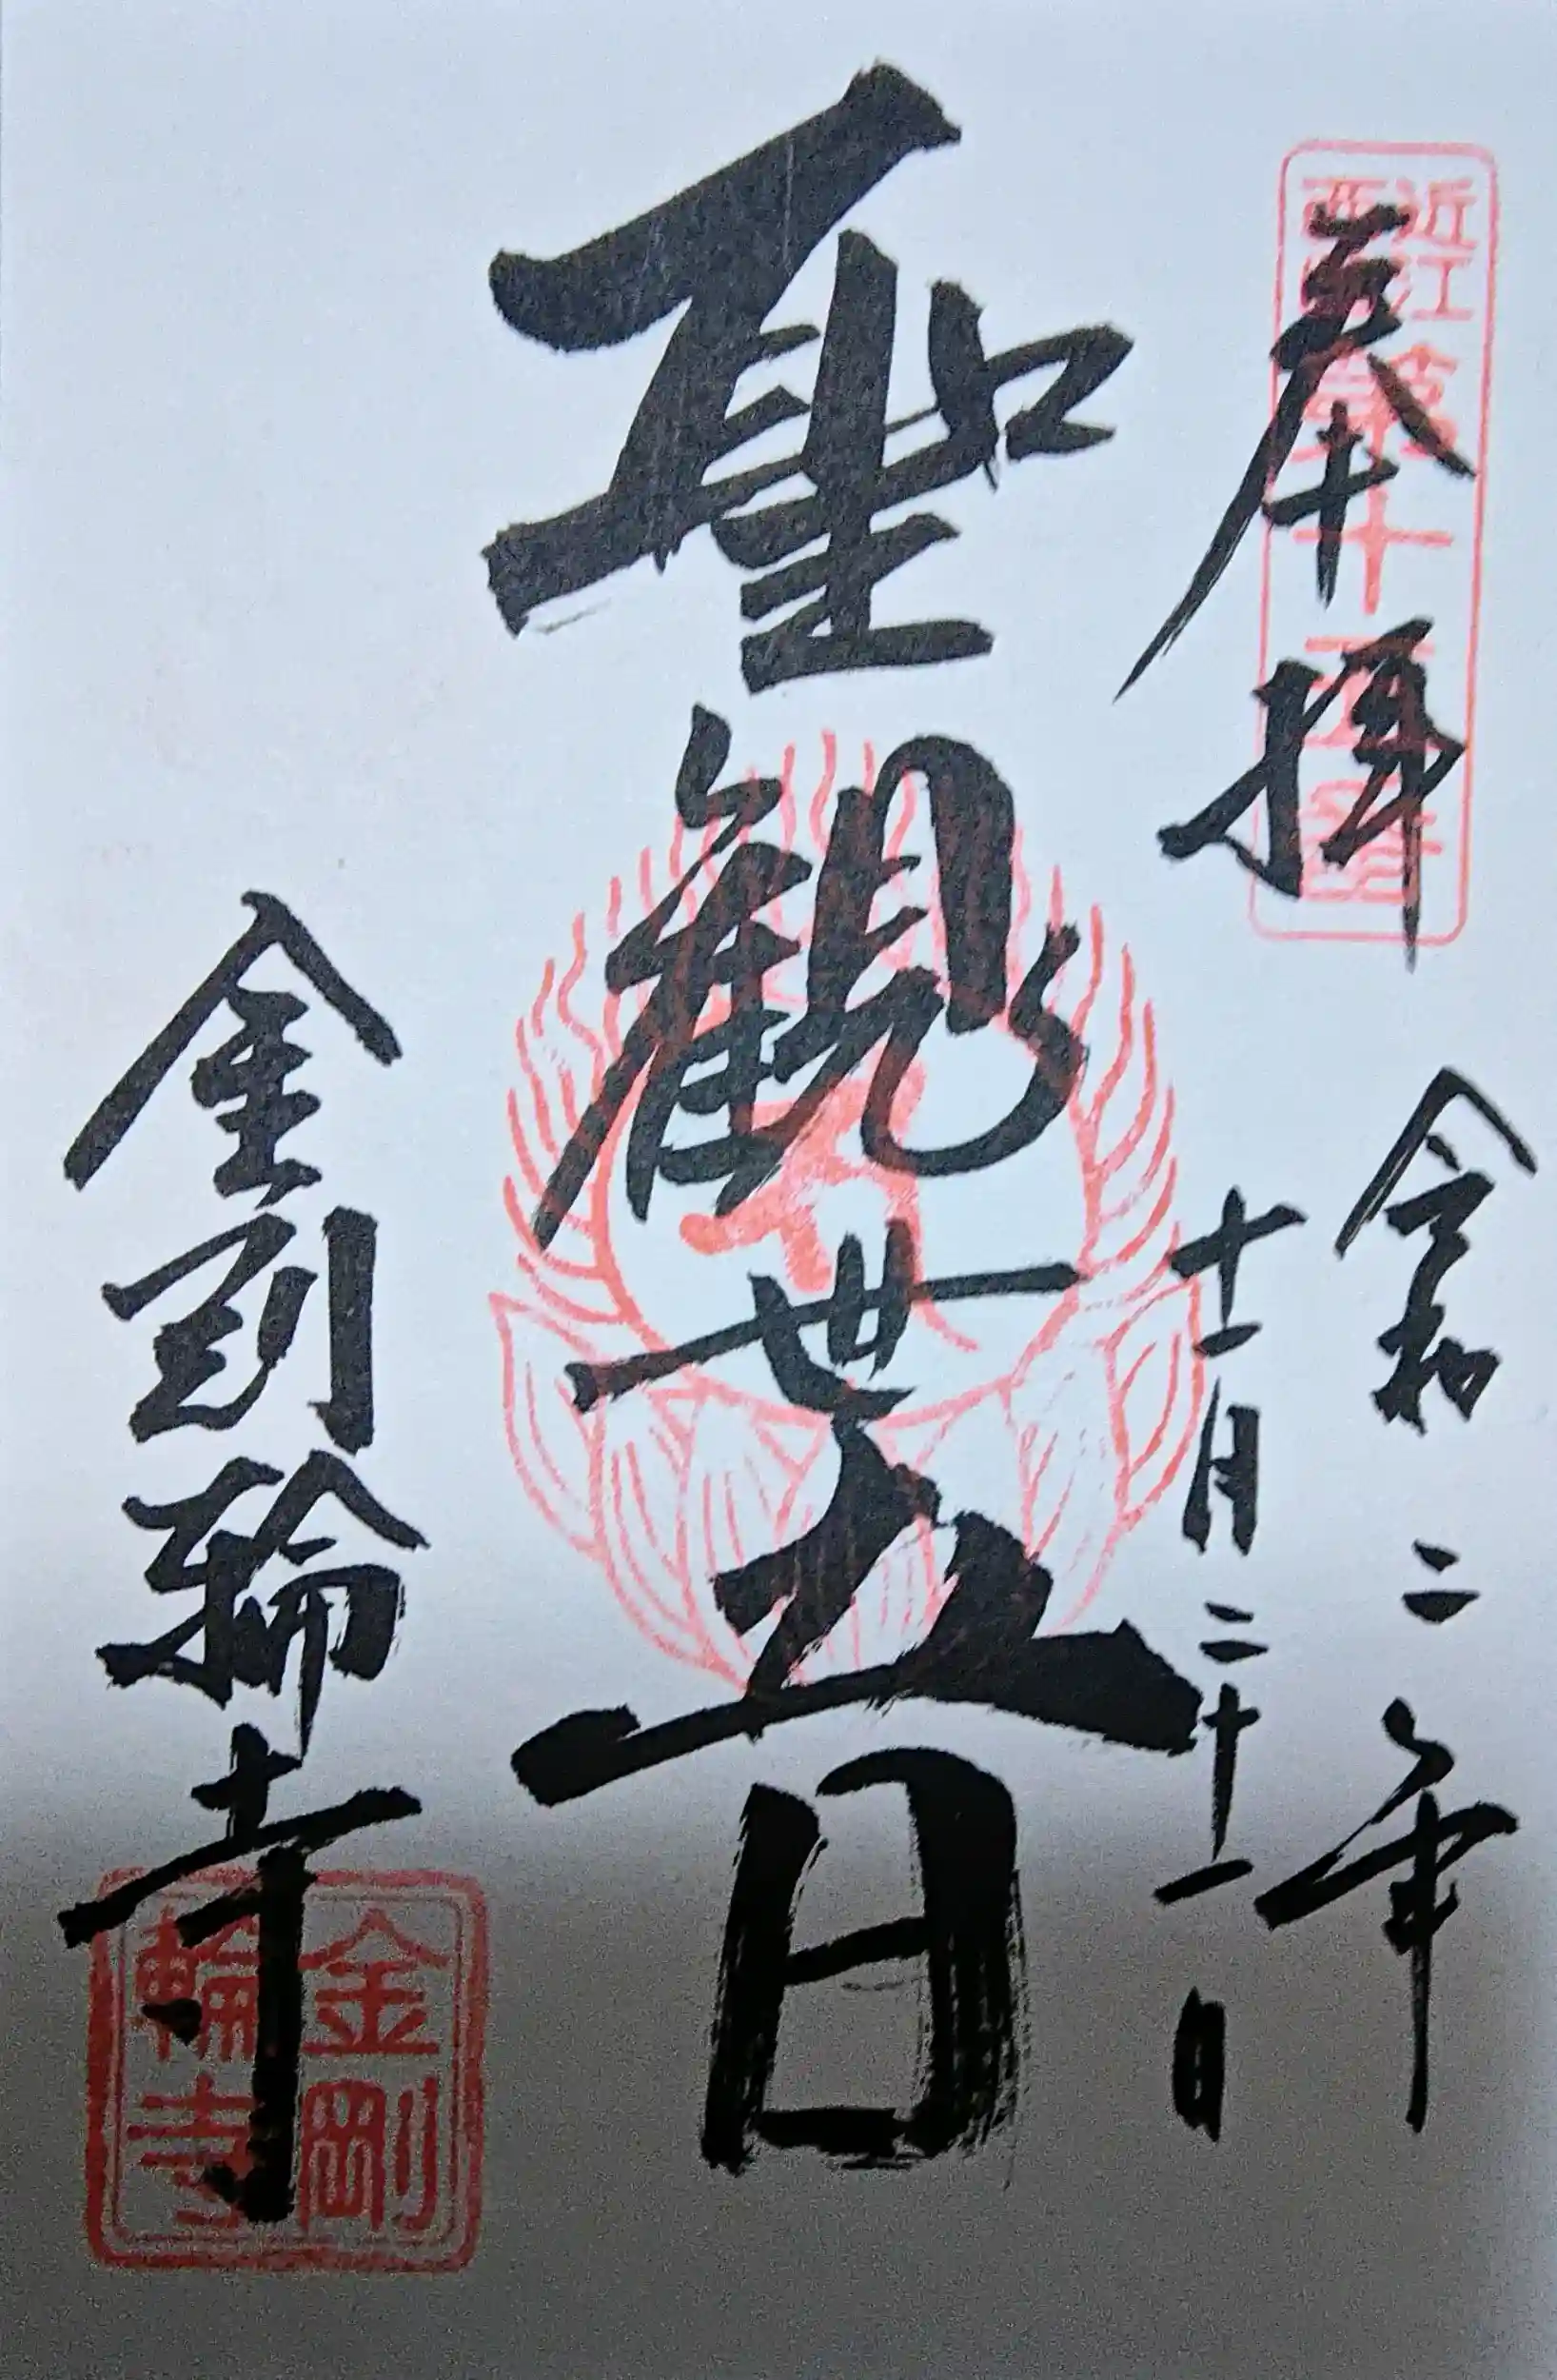 奉拝
近江
西国
第十五番
令和二年
十一月二十一日
聖観世音
金剛輪寺
金剛
輪寺